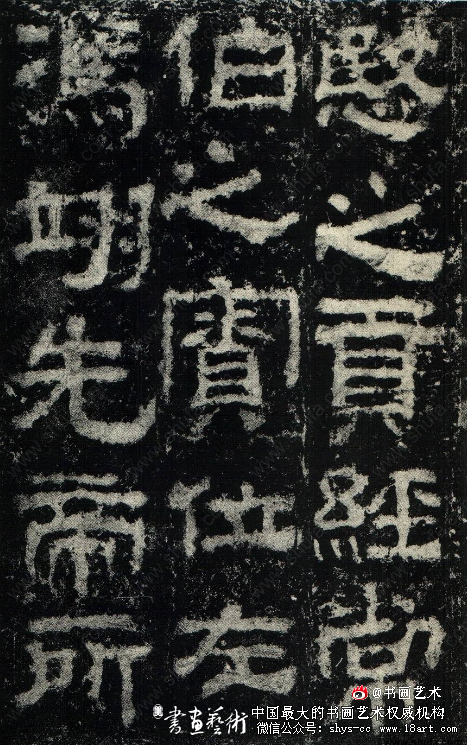 之貢經尚
伯之位左
馮翊先帝所
@书画艺术
書畫藝術 中国最大的书画艺术权威机构
微信公众号：shys-cc www.18art.com